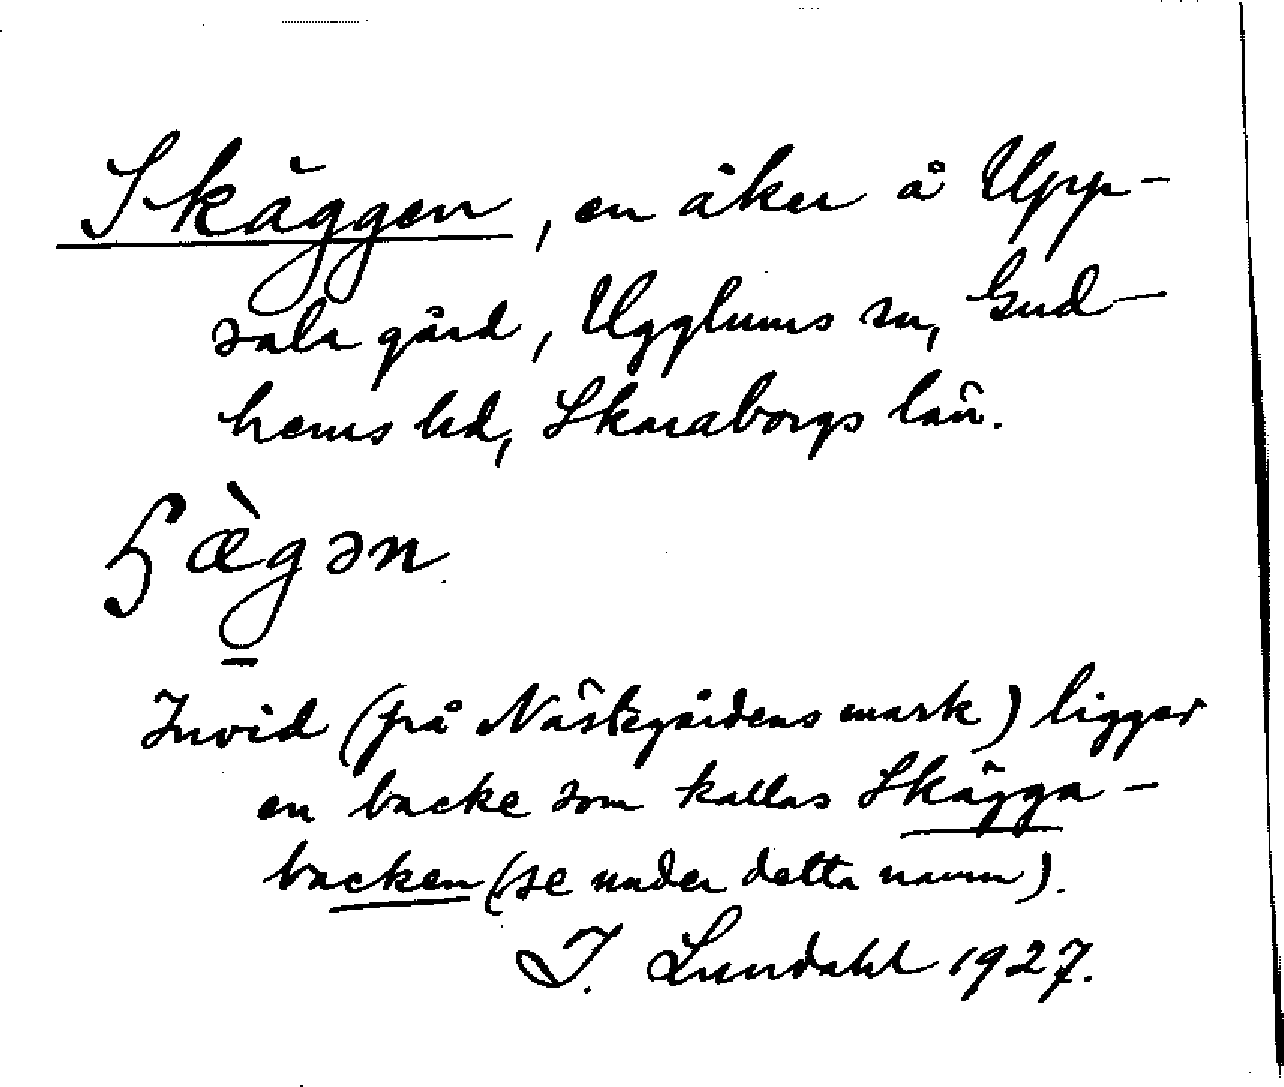 Skäggen, en åker å Upp-
sala gård, Ugglums sn, Gud-
hems hd, Skaraborgs län.
ɧæ̀gən
Invid (på Nästegårdens mark) ligger
en backe som kallas Skägga-
backen (se under detta namn).
I. Lundahl 1927.